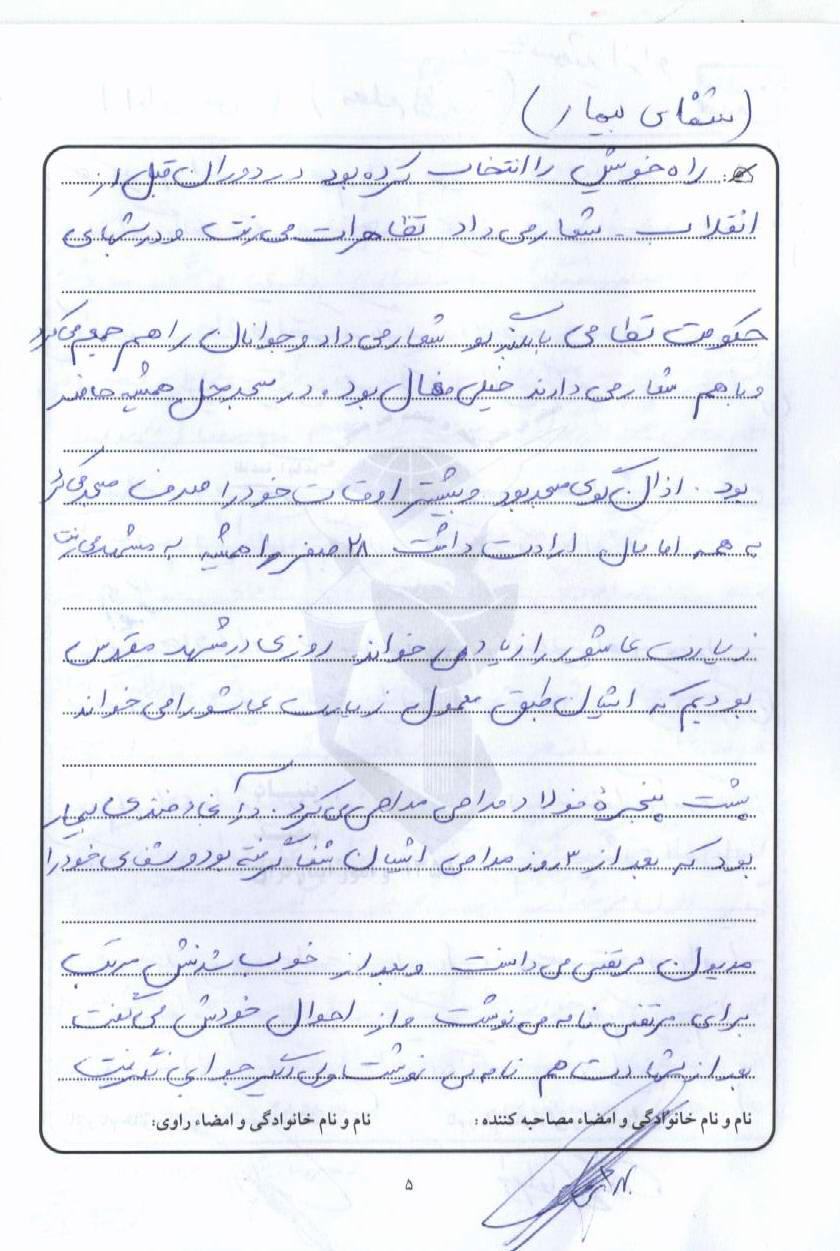 (شفای بیمار)
راه خویش را انتخاب کرده بود در دوران قبل از
انقلاب شعار می داد تظاهرات می رفت و در شبهای
حکومت نظامی با بلندگو شعار می داد و جوانان را هم جمع می کرد
و با هم شعار می دادند خیلی فعال بود. در مسجد محل همیشه حاضر
بود. اذان گوی مسجد بود و بیشتر اوقات خود را صرف مسجد می کرد
به همه امامان ارادت داشت ۲۸ صفر را همیشه به مشهد می رفت
زیارت عاشورا زیاد می خواند روزی در مشهد مقدس
بودیم که ایشان طبق معمول زیارت عاشورا می خواند
پشت پنجره فولاد مداحی مداحی می کرد. در آنجا دختری بیمار
بود که بعد از ۳ روز مداحی ایشان شفا گرفته بود و شفای خود را
مدیون مرتضی می دانست و بعد از خوب شدنش مرتب
برای مرتضی نامه می نوشت و از احوال خودش می گفت
بعد از شهادت هم نامه می نوشت ولی دیگر جوابی نگرفت
نام و نام خانوادگی و امضاء مصاحبه کننده : نام و نام خانوادگی و امضاء راوی:
۵